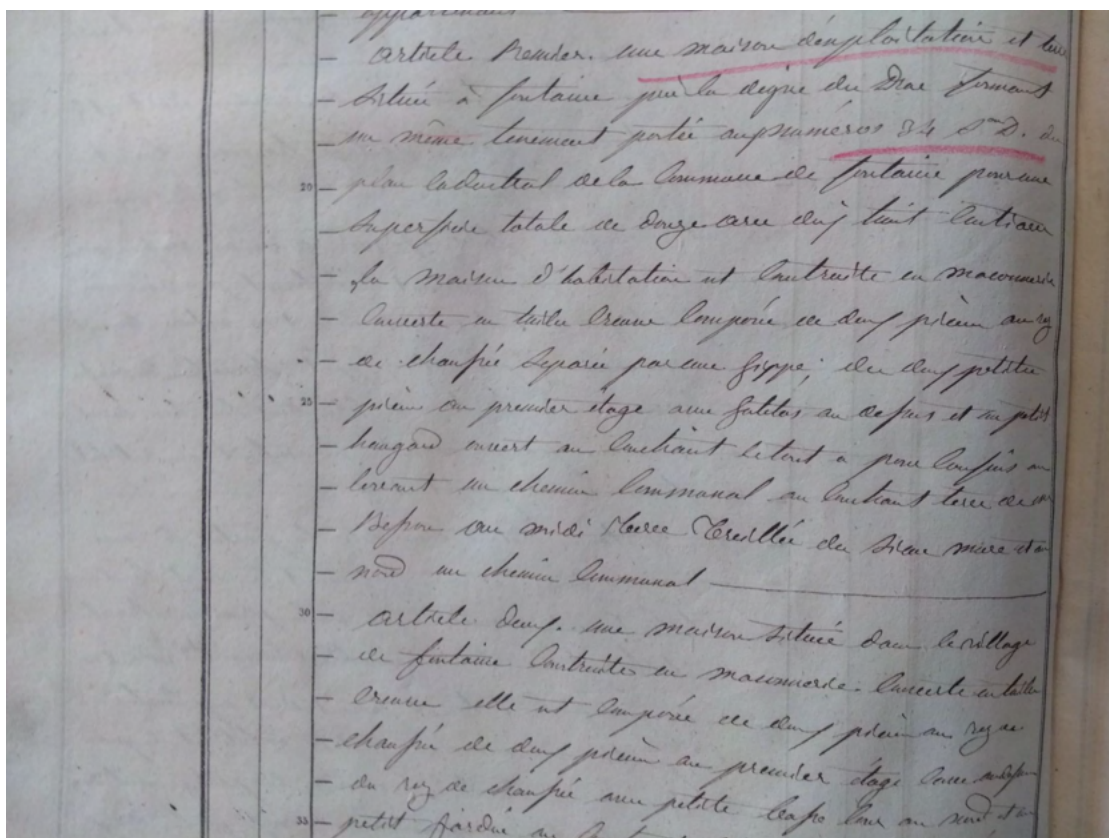 appartenant
article Premier. une maison d'exploitation et terre
située à fontaine prè la digue du Drac formant
un même tenement portée aux numéros 34 Son D. du
plan Cadastral de la Commune de fontaine pour une
superficie totale de douze ares cinq cent
la maison d'habitation est Construite en maconnerie
Couverte en tuile Creuse Composée de deux pièces au rez
de chaussée séparée par une gippe, de deux petites
pièces au premier étage avec galetas au dessus et un petit
hangard ouvert au Couchant le tout a pour Confins au
levant un chemin Communal au Couchant terre de
Besson au midi terre du sieur et au
nord un chemin Communal
30
article deux. une maison située dans le village
de fontaine Construite en maconnerie. Couverte en tuile
Creuse elle est Composée de deux pièces au rez de
chaussée de deux pièces au premier étage Cave au dessous
du rez de chaussée avec petite basse Cour au nord et un
petit jardin
20
25
35